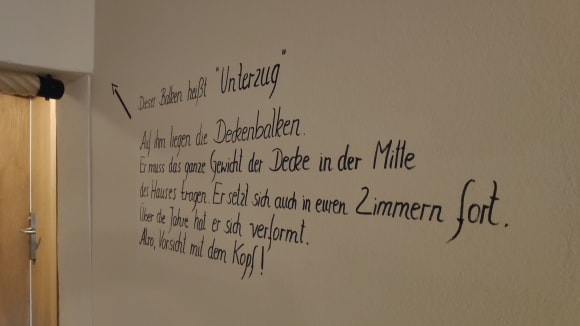 Dieser Balken heißt "Unterzug"
Auf ihm liegen die Deckenbalken.
Er muss das ganze Gewicht der Decke in der Mitte
des Hauses tragen. Er setzt sich auch in euren Zimmern fort.
Über die Jahre hat er sich verformt.
Also, Vorsicht mit dem Kopf!